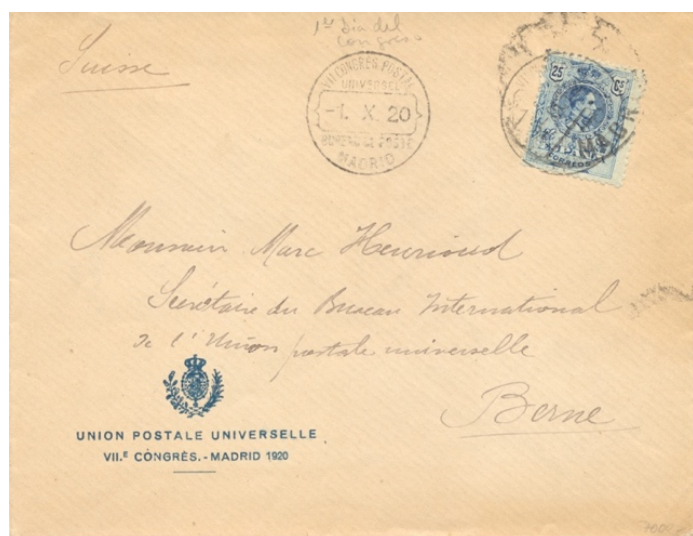 1er día del
congreso
Suisse
VII CONGRÈS POSTAL
UNIVERSEL
-1. X. 20
BUREAU DE POSTE
MADRID
25 Cs
CORREOS
MADRID
Monsieur Marc Henrioud
Secrétaire du Bureau International
de l'Union postale universelle
Berne
UNION POSTALE UNIVERSELLE
VII.E CÒNGRÈS.-MADRID 1920
7000